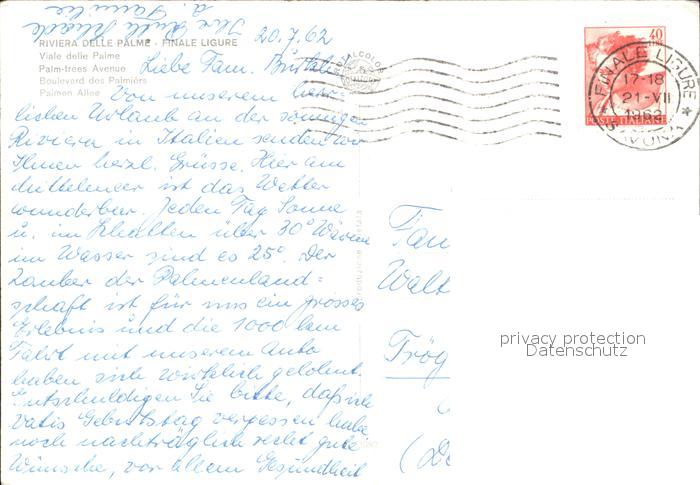 Ihre
u. Familie
20.7.62
RIVIERA DELLE PALME - FINALE LIGURE
Viale delle Palme
Palm-trees Avenue
Boulevard des Palmiers
Palmen Allee
Liebe Fam.
Von unserem herr-
lichen Urlaub an der sonnigen
Riviera in Italien senden wir
Ihnen herzl. Grüsse. Hier am
Mittelmeer ist das Wetter
wunderbar. Jeden Tag Sonne
u. im Schatten über 30° Wärme
im Wasser sind es 25°. Der
Zauber der Palmenland=
schaft ist für uns ein grosses
Erlebnis und die 1000 km
Fahrt mit unserem Auto
haben sich wirklich gelohnt.
Entschuldigen Sie bitte, daß ich
Vatis Geburtstag vergessen habe
noch nachträglich recht gute
Wünsche, vor allem Gesundheit
40
FINALE LIGURE
17-18
21-VII
1962
SAVONA
POSTE ITALIANE
Fam
Walt
Trög
privacy protection
Datenschutz